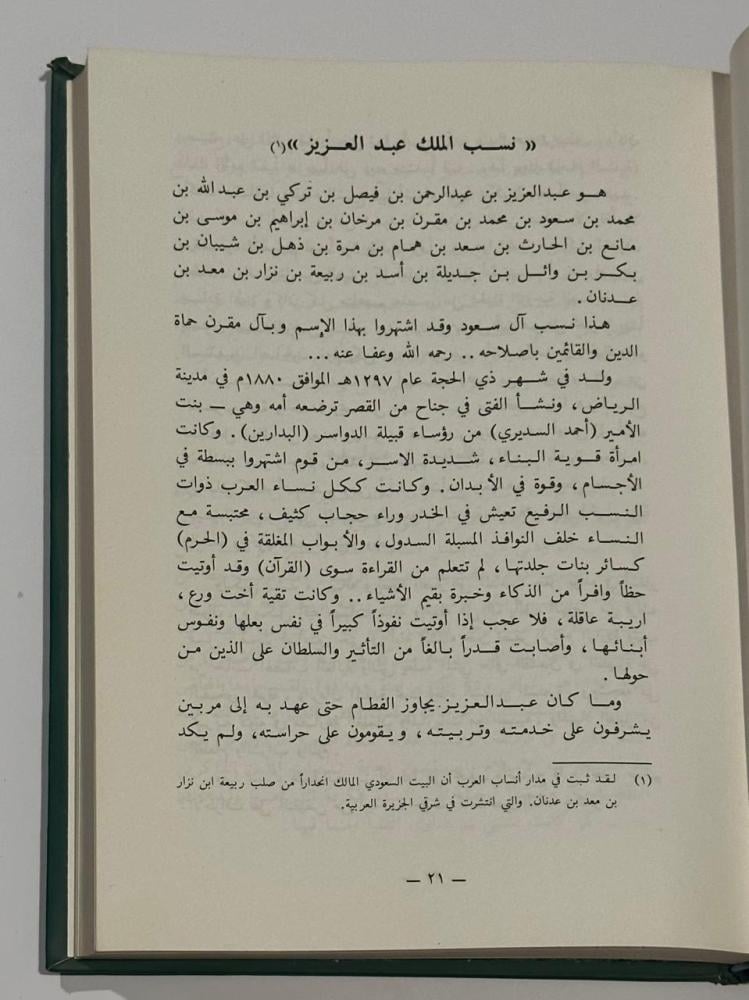 « نسب الملك عبد العزيز »(١)
هو عبدالعزيز بن عبدالرحمن بن فيصل بن تركي بن عبدالله بن
محمد بن سعود بن محمد بن مقرن بن مرخان بن إبراهيم بن موسى بن
مانع بن الحارث بن سعد بن همام بن مرة بن ذهل بن شيبان بن
بكر بن وائل بن جديلة بن أسد بن ربيعة بن نزار بن معد بن
عدنان .
هذا نسب آل سعود وقد اشتهروا بهذا الإسم وبآل مقرن حماة
الدين والقائمين باصلاحه .. رحمه الله وعفا عنه ...
ولد في شهر ذي الحجة عام ١٢٩٧هـ الموافق ١٨٨٠م في مدينة
الرياض ، ونشأ الفتى في جناح من القصر ترضعه أمه وهي — بنت
الأمير (أحمد السديري) من رؤساء قبيلة الدواسر (البدارين) . وكانت
امرأة قوية البناء ، شديدة الاسر ، من قوم اشتهروا ببسطة في
الأجسام ، وقوة في الأبدان . وكانت ككل نساء العرب ذوات
النسب الرفيع تعيش في الخدر وراء حجاب كثيف ، محتبسة مع
النساء خلف النوافذ المسبلة السدول ، والأبواب المغلقة في (الحرم)
كسائر بنات جلدتها ، لم تتعلم من القراءة سوى (القرآن) وقد أوتيت
حظاً وافراً من الذكاء وخبرة بقيم الأشياء .. وكانت تقية أخت ورع ،
اريبة عاقلة ، فلا عجب إذا أوتيت نفوذاً كبيراً في نفس بعلها ونفوس
أبنائها ، وأصابت قدراً بالغاً من التأثير والسلطان على الذين من
حولها .
وما كان عبدالعزيز يجاوز الفطام حتى عهد به إلى مربين
يشرفون على خدمته وتربيته ، ويقومون على حراسته ، ولم يكد
(١) لقد ثبت في مدار أنساب العرب أن البيت السعودي المالك انحداراً من صلب ربيعة ابن نزار
بن معد بن عدنان. والتي انتشرت في شرقي الجزيرة العربية.
— ٢١ —